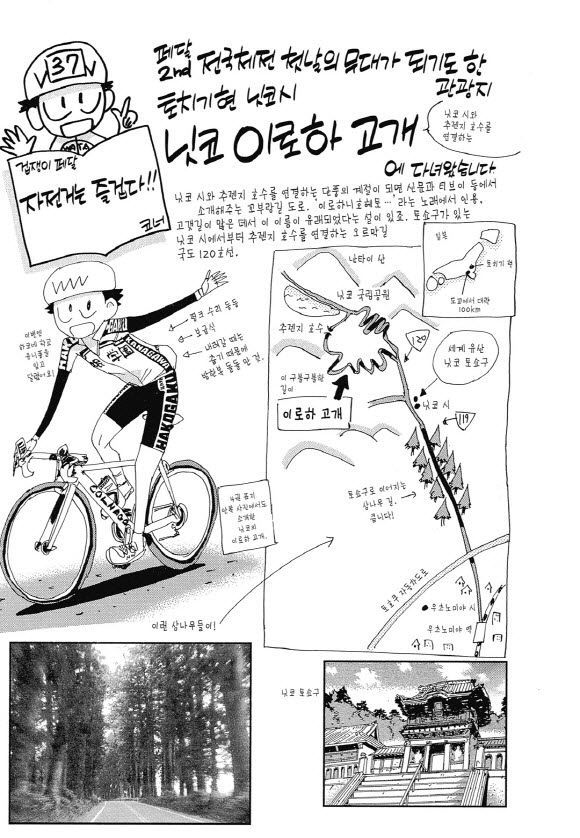 37
HATA
겁쟁이 페달
자전거는 즐겁다!!
코너
페달
2nd 전국체전 첫날의 무대가 되기도 한
관광지
토치기현 닛코시
닛코 이로하 고개
에 다녀왔습니다
닛코 시와
추젠지 호수를
연결하는
닛코 시와 추젠지 호수를 연결하는 단풍의 계절이 되면 신문과 티브이 등에서
소개해주는 꼬부랑길 도로. '이로하니호헤토…'라는 노래에서 인용,
고갯길이 많은 데서 이 이름이 유래되었다는 설이 있죠. 토쇼구가 있는
닛코 시에서부터 추젠지 호수를 연결하는 오르막길
국도 120호선.
이번엔
하코네 학교
유니폼을
입고
달렸어요!
펑크 수리 도구 등
보급식
내려갈 때는
춥기 때문에
방한복
HAKOGAKU
KANAGAWA
HAKOGAKU
COLNAGO
4권 표지
안쪽 사진에서도
소개한
닛코의
이로하 고개.
난타이 산
닛코 국립공원
추젠지 호수
이 구불구불한
길이
이로하 고개
일본
토치기 현
도쿄에서 대략
100km
120
세계 유산
닛코 토쇼구
닛코 시
119
토쇼구로 이어지는
삼나무 길.
큽니다!
토호쿠 자동차도로
우츠노미야 시
우츠노미야 역
이런 삼나무들이!
닛코 토쇼구